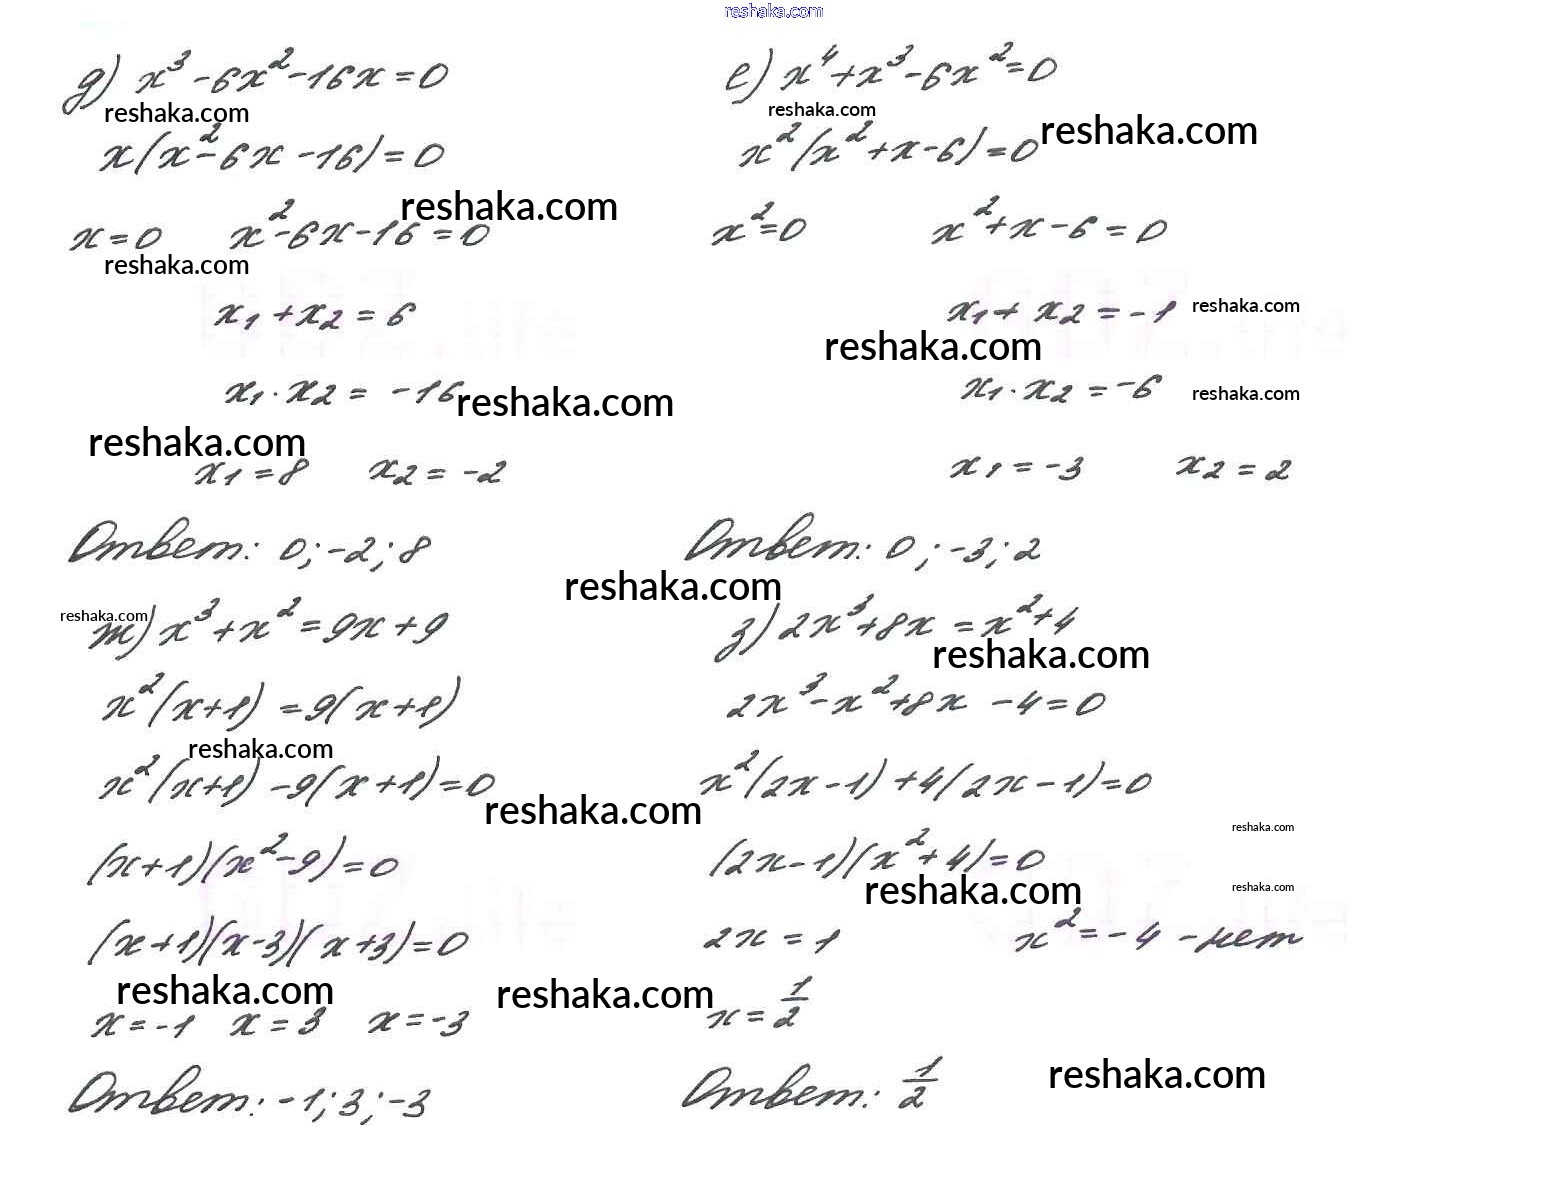 reshaka.com
д) x³ - 6x² - 16x = 0
reshaka.com
x(x² - 6x - 16) = 0
reshaka.com
x = 0 x² - 6x - 16 = 0
reshaka.com
x₁ + x₂ = 6
x₁ · x₂ = -16
reshaka.com
reshaka.com
x₁ = 8 x₂ = -2
Ответ: 0; -2; 8
е) x⁴ + x³ - 6x² = 0
reshaka.com
reshaka.com
x²(x² + x - 6) = 0
x² = 0 x² + x - 6 = 0
x₁ + x₂ = -1
reshaka.com
reshaka.com
x₁ · x₂ = -6
reshaka.com
x₁ = -3 x₂ = 2
Ответ: 0; -3; 2
reshaka.com
reshaka.com
ж) x³ + x² = 9x + 9
x²(x+1) = 9(x+1)
reshaka.com
x²(x+1) - 9(x+1) = 0
reshaka.com
(x+1)(x²-9) = 0
(x+1)(x-3)(x+3) = 0
reshaka.com
reshaka.com
x = -1 x = 3 x = -3
Ответ: -1; 3; -3
з) 2x³ + 8x = x² + 4
reshaka.com
2x³ - x² + 8x - 4 = 0
x²(2x-1) + 4(2x-1) = 0
reshaka.com
(2x-1)(x²+4) = 0
reshaka.com
reshaka.com
2x = 1 x² = -4 - нет
x = 1/2
reshaka.com
Ответ: 1/2